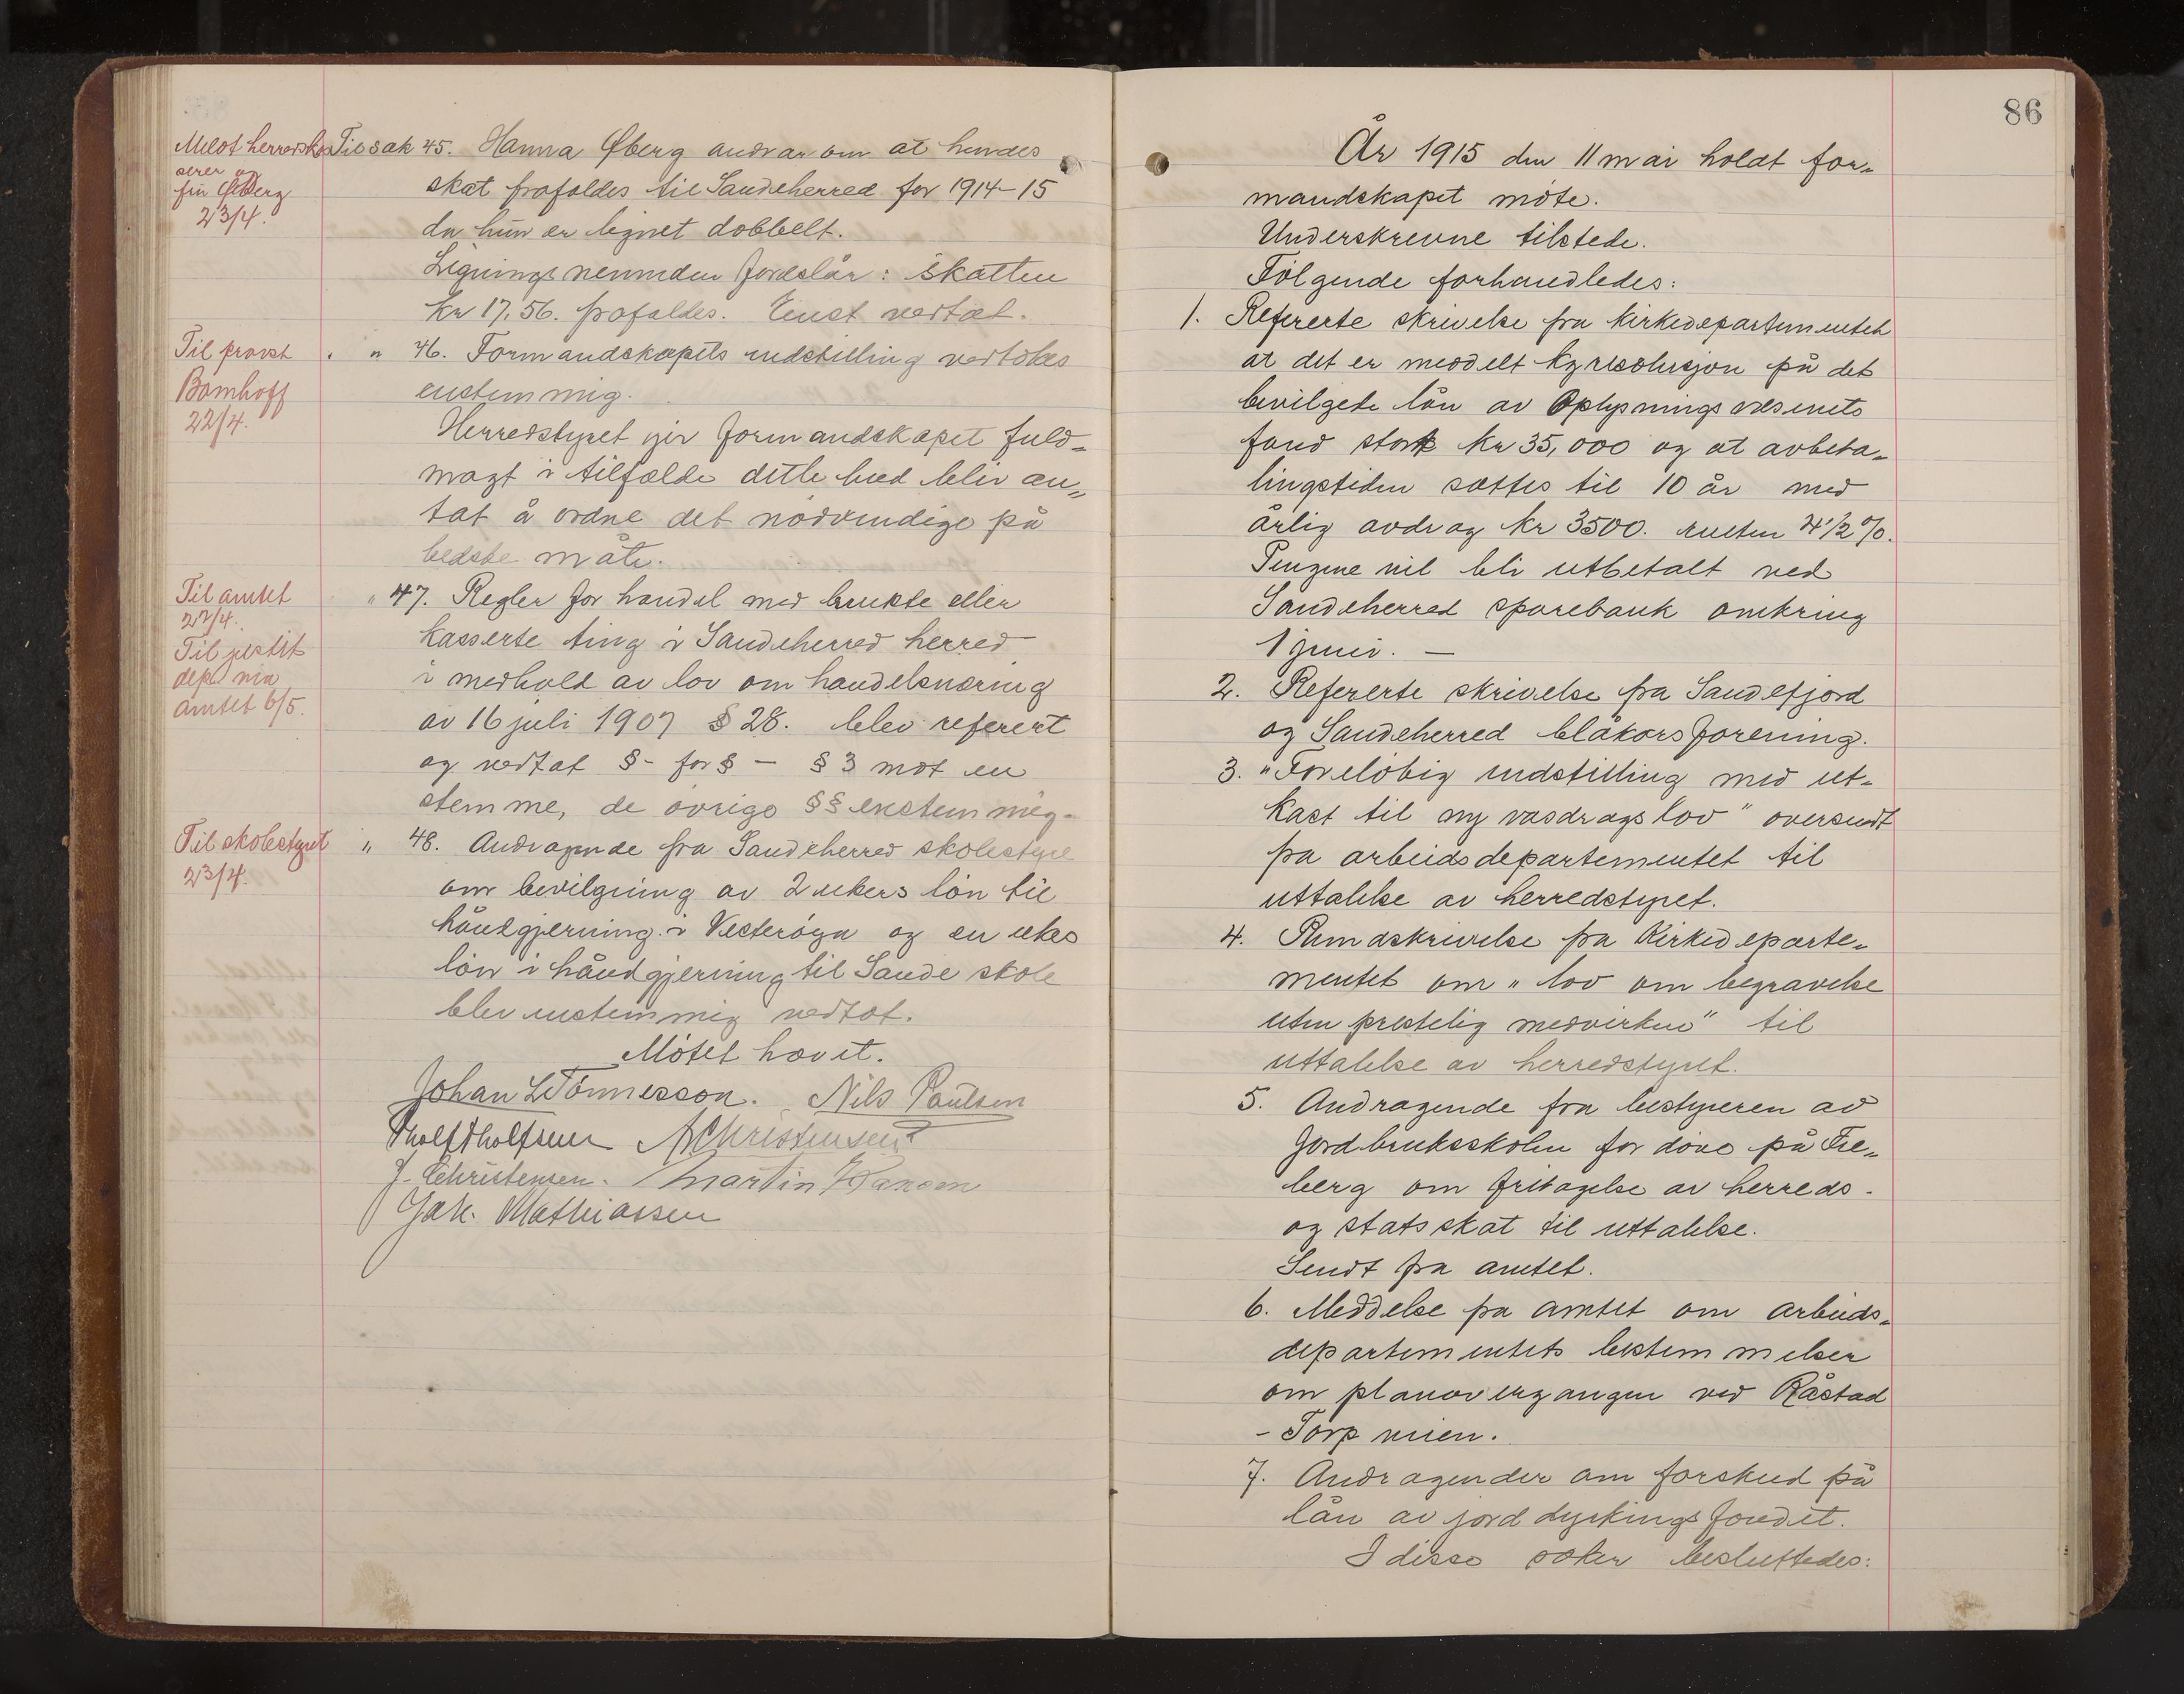 Til sak 45. Hanna Øberg andrar om at hendes
skat frafaldes til Sandeherred for 1914-15
da hun er lignet dobbelt.
Ligningsnemnden foreslår: skatten
kr 17,56. frafaldes. Enst vedtat.
" " 46. Formandskapets indstilling vedtokes
enstemmig.
Herredstyret gir formandskapet fuld=
magt i tilfælde dette bud blir an=
tat å ordne det nödvendige på
bedste måte.
" 47. Regler for handel med brukte eller
kasserte ting i Sandeherred herred
i medhold av lov om handelsnæring
av 16 juli 1907 § 28. blev referert
og vedtat §- for § - § 3 mot en
stemme, de övrige §§ enstemmig.
" 48. Andragende fra Sandeherred skolestyre
om bevilgning av 2 ukers lön til
håndgjerning i Vesteröya og en ukes
lön i håndgjerning til Sande skole
blev enstemmig vedtat.
Mötet hævet.
Johan L Tönnesson. Nils Paulsen
A Christensen
J. Christensen. Martin Hansen
Jak. Mathiassen
Meldt herredskas
serer og
frk Øberg
23/4.
Til provst
Bomhoff
22/4.
Til amtet
27/4.
Til justit
dep. via
amtet 6/5.
Til skolestyret
23/4.
86
År 1915 den 11 mai holdt for=
mandskapet möte.
Underskrevne tilstede.
Fölgende forhandledes:
1. Refererte skrivelse fra kirkedepartementet
at det er meddelt kgresolusjon på det
bevilgede lån av Oplysningsvæsenets
fond stort kr 35,000 og at avbeta=
lingstiden sættes til 10 år med
årlig avdrag kr 3500. renten 4 1/2 %.
Pengene vil bli utbetalt ved
Sandeherred sparebank omkring
1 juni. —
2. Refererte skrivelse fra Sandefjord
og Sandeherred blåkorsforening.
3. "Forelöbig indstilling med ut=
kast til ny vasdragslov" oversendt
fra arbeidsdepartementet til
uttalelse av herredstyret.
4. Rundskrivelse fra Kirkedeparte=
mentet om "lov om begravelse
uten prestelig medvirken" til
uttalelse av herredstyret.
5. Andragende fra bestyreren av
Jordbruksskolen for döve på Fre=
berg om fritagelse av herreds-
og statsskat til uttalelse.
Sendt fra amtet.
6. Meddelse fra amtet om arbeids=
departementets bestemmelser
om planovergangen ved Råstad
- Torp veien.
7. Andragender om forskud på
lån av jorddyrkingsfondet.
I disse saker besluttedes: